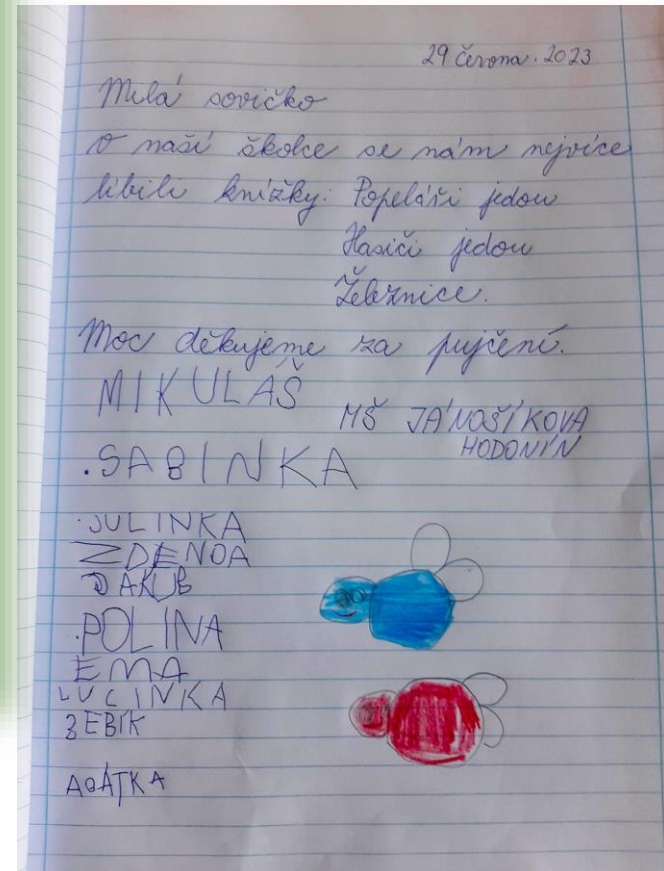 29 června. 2023
Milá sovičko
v naší školce se nám nejvíce
líbili knížky: Popeláři jedou
Hasiči jedou
Železnice.
Moc děkujeme za pujčení.
MIKULÁŠ
MŠ JÁNOŠÍKOVA
HODONÍN
.SABINKA
.JULINKA
ZDENDA
JAKUB
.POLINA
EMA
LUCINKA
BEBÍK
AGÁTKA